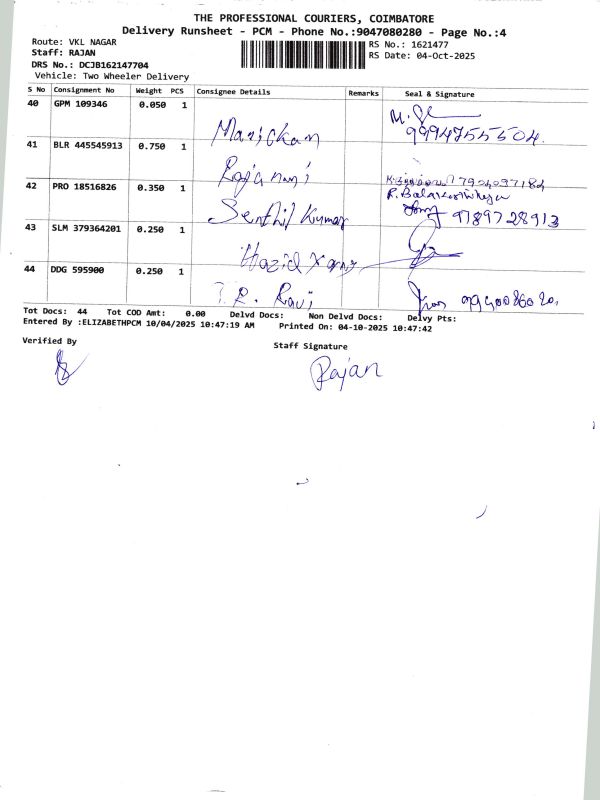 THE PROFESSIONAL COURIERS, COIMBATORE
Delivery Runsheet - PCM - Phone No.:9047080280 - Page No.:4
Route: VKL NAGAR
Staff: RAJAN
DRS No.: DCJB162147704
Vehicle: Two Wheeler Delivery
RS No.: 1621477
RS Date: 04-Oct-2025
S No Consignment No Weight PCS Consignee Details Remarks Seal & Signature
40 GPM 109346 0.050 1
Manickan
9994755504
41 BLR 445545913 0.750 1
Rajamani
42 PRO 18516826 0.350 1
Senthil Kumar
9789728913
43 SLM 379364201 0.250 1
44 DDG 595900 0.250 1
T.R. Ravi
Tot Docs: 44 Tot COD Amt: 0.00 Delvd Docs: Non Delvd Docs: Delvy Pts:
Entered By :ELIZABETHPCM 10/04/2025 10:47:19 AM Printed On: 04-10-2025 10:47:42
Verified By
Staff Signature
Rajan